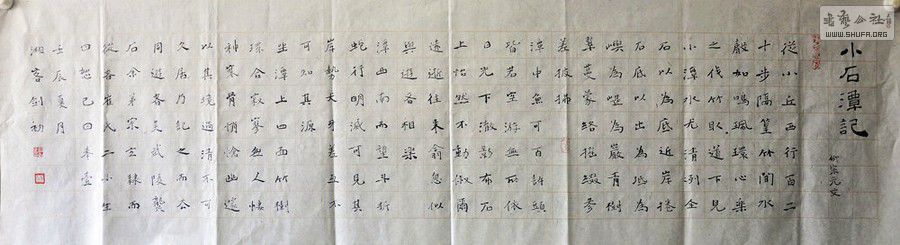 小石潭記
柳宗元文
從小丘西行百二
十步隔篁竹聞水
聲如鳴珮環心樂
之伐竹取道下見
小潭水尤清冽全
石以為底近岸捲
石底以出為坻為
嶼為嵁為巖青樹
翠蔓蒙絡搖綴參
差披拂
潭中魚可百許頭
皆若空游無所依
日光下澈影布石
上怡然不動俶爾
遠逝往來翕忽似
與遊者相樂
潭西南而望斗折
蛇行明滅可見其
岸勢犬牙差互不
可知其源
坐潭上四面竹樹
環合寂寥無人悽
神寒骨悄愴幽邃
以其境過清不可
久居乃記之而去
同遊者吳武陵龔
右余弟宗玄隸而
從者崔氏二小生
曰恕己曰奉壹
壬辰夏月
湘客劍初
WWW.SHUFA.ORG